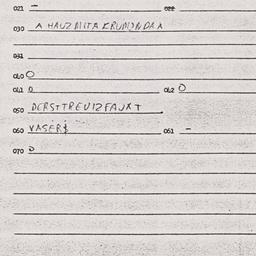 021 – 022
030 A HAUZMITA KRUMONDRA
031
040 O
041 O 042 O
050 DERSTTREVIZFAJXT
060 VASERS 061 –
070 O